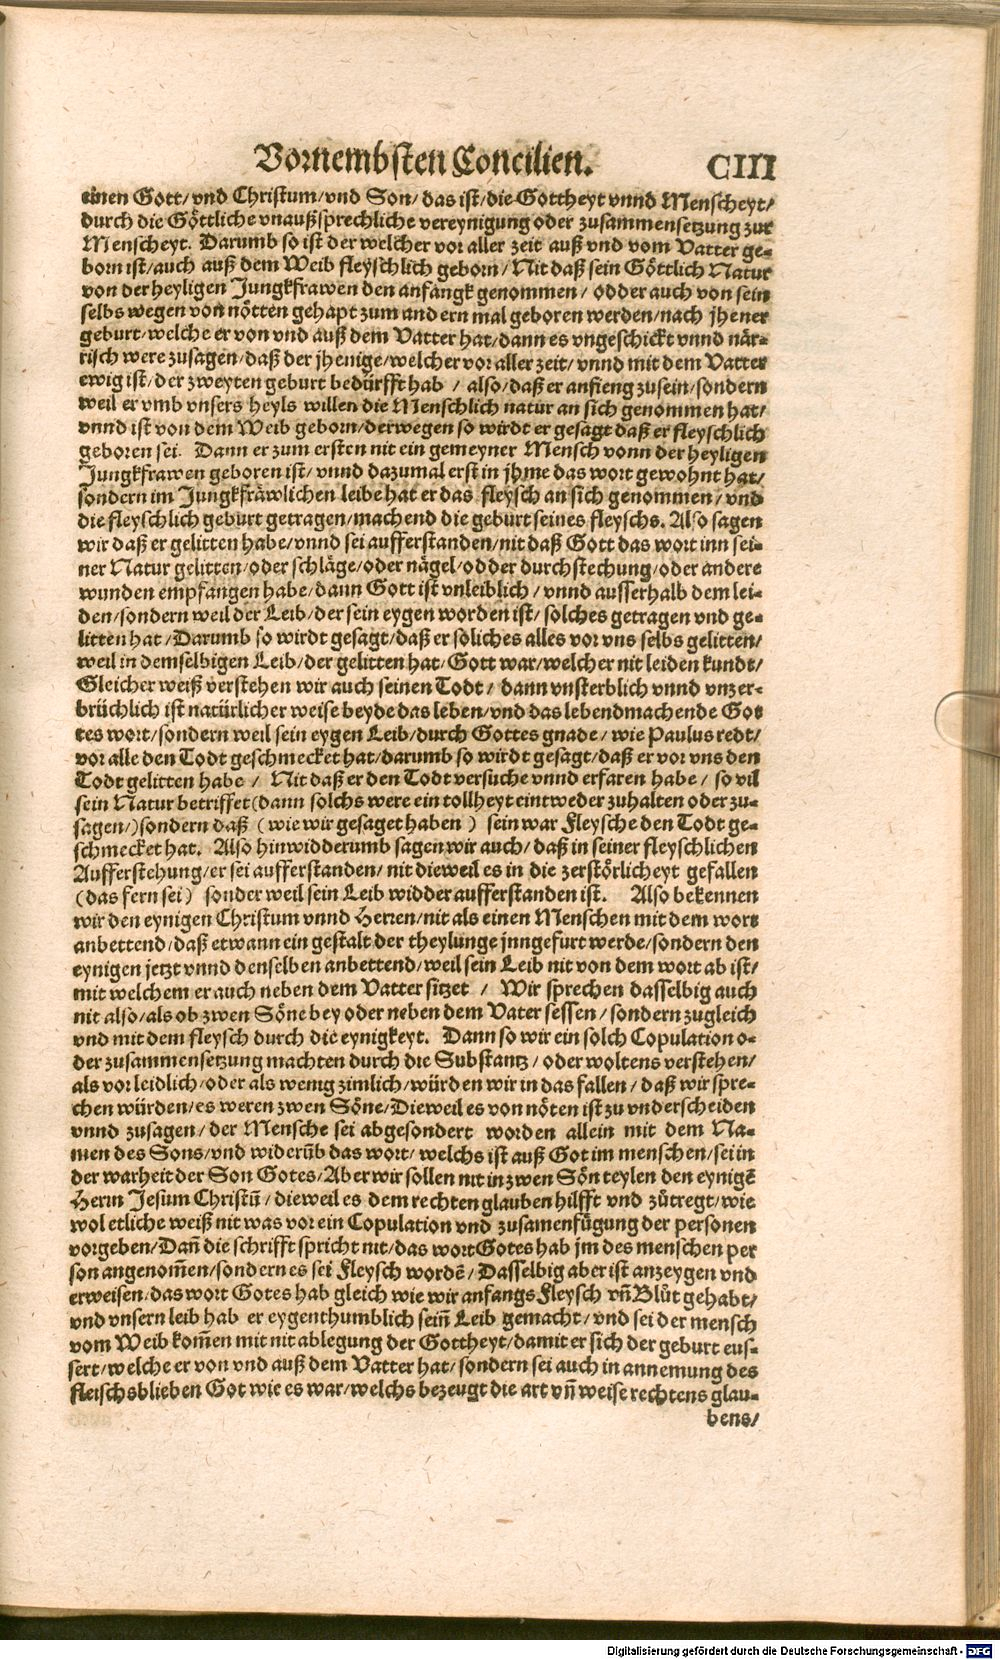 Vornembsten Concilien. CIII
einen Gott/ vnd Christum/vnd Son/ das ist/die Gottheyt vnnd Menscheyt/
durch die Göttliche vnaußsprechliche vereynigung oder zusammensetzung zur
Menscheyt. Darumb so ist der welcher vor aller zeit auß vnd vom Vatter ge-
born ist/auch auß dem Weib fleyschlich geborn/ Nit daß sein Göttlich Natur
von der heyligen Jungkfrawen den anfangk genommen/ odder auch von sein
selbs wegen von nötten gehapt zum andern mal geboren werden/nach jhener
geburt/welche er von vnd auß dem Vatter hat/dann es vngeschickt vnnd när-
risch were zusagen/daß der jhenige/welcher vor aller zeit/ vnnd mit dem Vatter
ewig ist/der zweyten geburt bedürfft hab / also/daß er anfieng zusein/sondern
weil er vmb vnsers heyls willen die Menschlich natur an sich genommen hat/
vnnd ist von dem Weib geborn/derwegen so wirdt er gesagt daß er fleyschlich
geboren sei. Dann er zum ersten nit ein gemeyner Mensch vonn der heyligen
Jungkfrawen geboren ist/vnnd dazumal erst in jhme das wort gewohnt hat/
sondern im Jungkfräwlichen leibe hat er das fleysch an sich genommen/vnd
die fleyschlich geburt getragen/machend die geburt seines fleyschs. Also sagen
wir daß er gelitten habe/vnnd sei aufferstanden/nit daß Gott das wort inn sei-
ner Natur gelitten/oder schläge/oder nägel/odder durchstechung/oder andere
wunden empfangen habe/dann Gott ist vnleiblich/ vnnd ausserhalb dem lei-
den/sondern weil der Leib/der sein eygen worden ist/ solches getragen vnd ge-
litten hat/Darumb so wirdt gesagt/daß er soliches alles vor vns selbs gelitten/
weil in demselbigen Leib/der gelitten hat/Gott war/welcher nit leiden kundt/
Gleicher weiß verstehen wir auch seinen Todt/ dann vnsterblich vnnd vnzer-
brüchlich ist natürlicher weise beyde das leben/vnd das lebendmachende Got
tes wort/sondern weil sein eygen Leib/durch Gottes gnade/ wie Paulus redt/
vor alle den Todt geschmecket hat/darumb so wirdt gesagt/daß er vor vns den
Todt gelitten habe / Nit daß er den Todt versuche vnnd erfaren habe/ so vil
sein Natur betriffet(dann solchs were ein tollheyt eintweder zuhalten oder zu-
sagen/)sondern daß (wie wir gesaget haben) sein war Fleysche den Todt ge-
schmecket hat. Also hinwidderumb sagen wir auch/daß in seiner fleyschlichen
Aufferstehung/er sei aufferstanden/nit dieweil es in die zerstörlicheyt gefallen
(das fern sei) sonder weil sein Leib widder aufferstanden ist. Also bekennen
wir den eynigen Christum vnnd Herren/nit als einen Menschen mit dem wort
anbettend/daß etwann ein gestalt der theylunge jnngefurt werde/sondern den
eynigen jetzt vnnd denselben anbettend/weil sein Leib nit von dem wort ab ist/
mit welchem er auch neben dem Vatter sitzet / Wir sprechen dasselbig auch
nit also/als ob zwen Söne bey oder neben dem Vater sessen/sondern zugleich
vnd mit dem fleysch durch die eynigkeyt. Dann so wir ein solch Copulation o-
der zusammensetzung machten durch die Substantz/oder woltens verstehen/
als vor leidlich/oder als wenig zimlich/würden wir in das fallen/ daß wir spre-
chen würden/es weren zwen Söne/Dieweil es von nöten ist zu vnderscheiden
vnnd zusagen/der Mensche sei abgesondert worden allein mit dem Na-
men des Sons/vnd widerūb das wort/welchs ist auß Got im menschen/sei in
der warheit der Son Gotes/Aber wir sollen nit in zwen Sön teylen den eynigē
Herrn Jesum Christū/dieweil es dem rechten glauben hilfft vnd zůtregt/wie
wol etliche weiß nit was vor ein Copulation vnd zusamenfügung der personen
vorgeben/Dañ die schrifft spricht nit/das wort Gotes hab jm des menschen per
son angenom̄en/sondern es sei Fleysch wordē/Dasselbig aber ist anzeygen vnd
erweisen/das wort Gotes hab gleich wie wir anfangs Fleysch vñ Blůt gehabt/
vnd vnsern leib hab er eygenthumblich seiñ Leib gemacht/vnd sei der mensch
vom Weib kom̄en mit nit ablegung der Gottheyt/damit er sich der geburt eus-
sert/welche er von vnd auß dem Vatter hat/sondern sei auch in annemung des
fleischs blieben Got wie es war/welchs bezeugt die art vñ weise rechtens glau-
bens/
Digitalisierung gefördert durch die Deutsche Forschungsgemeinschaft - DFG